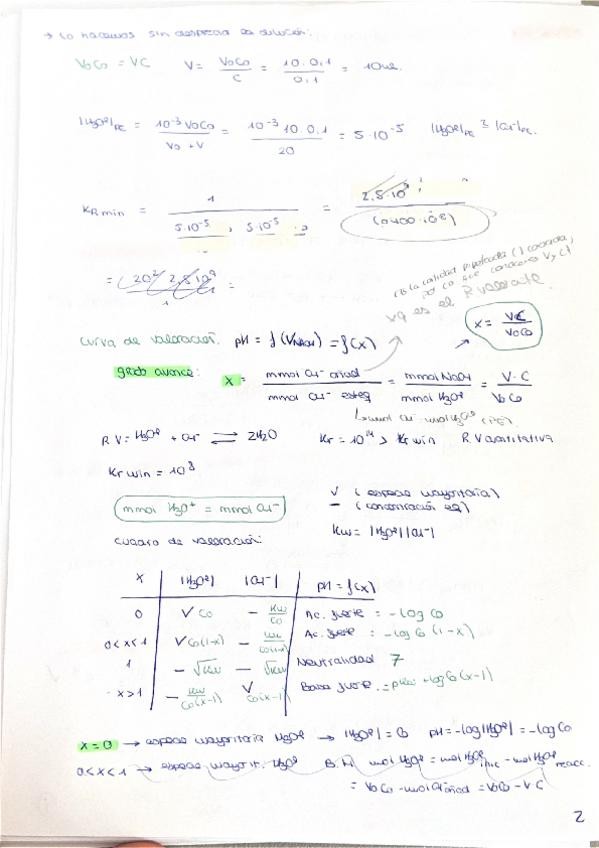 → lo hacemos sin despreciar la dilución:
VoCo = VC   V = VoCo/C = 10·0,1/0,1 = 10 mL
|H3O+|PE = 10^-3 VoCo/(Vo + V) = 10^-3 10·0,1/20 = 5·10^-5   |H3O+|PE = |OH-|PE.
KRmin = 1/(5·10^-5 · 5·10^-5)
valorante
curva de valoración. pH = f(VNaOH) = f(x)
x = VC/VoCo
grado avance: x = mmol OH- añad/mmol OH- esteq = mmol NaOH/mmol H3O+ = V·C/VoCo
R.V = H3O+ + OH- ⇌ 2H2O   Kr = 10^14 > Kr min   R. Cuantitativa
Kr min = 10^8
mmol H3O+ = mmol OH-
✓ (especie mayoritaria)
– (concentración eq)
cuadro de valoración:
Kw = |H3O+||OH-|
x | |H3O+| |OH-| | pH = f(x)
0 | ✓ Co – Kw/Co | Ac. fuerte: -log Co
0<x<1 | ✓ Co(1-x) – Kw/Co(1-x) | Ac. fuerte: -log Co (1-x)
1 | – √Kw – √Kw | Neutralidad 7
x>1 | – Kw/Co(x-1) ✓ Co(x-1) | Base fuerte: = pKw + log Co(x-1)
x = 0 → especie mayoritaria H3O+ → |H3O+| = Co   pH = -log|H3O+| = -log Co
0<x<1 → especie mayorit. H3O+   B.M   mol H3O+ = mol H3O+ inic - mol H3O+ reacc.
= VoCo - mol OH- añad = VoCo - VC
2